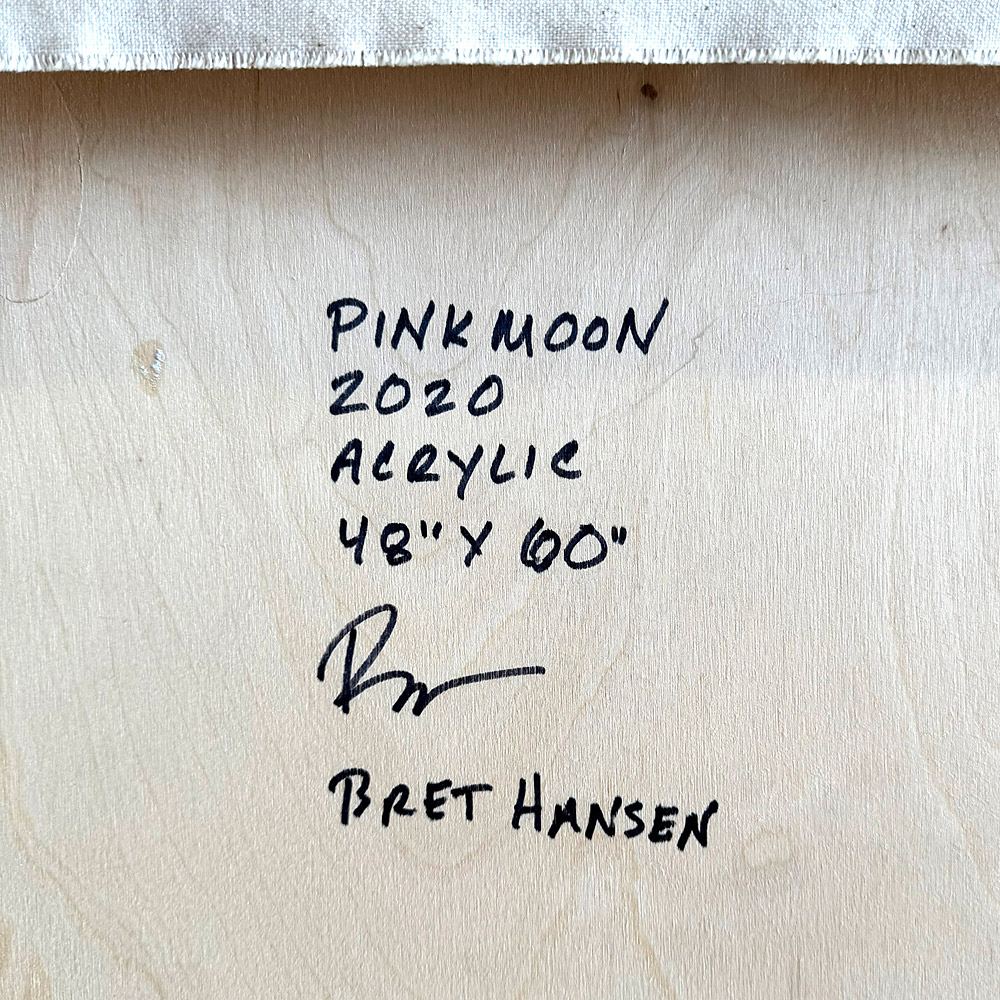 PINK MOON
2020
ACRYLIC
48" X 60"
BRET HANSEN